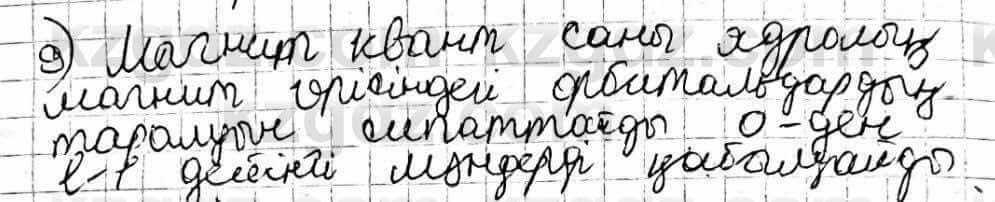 9) Магнит квант саны ядролық
магнит өрісіндегі орбитальдардың
таралуын сипаттайды 0-ден
l-1 дейінгі мәндерді қабылдайды.